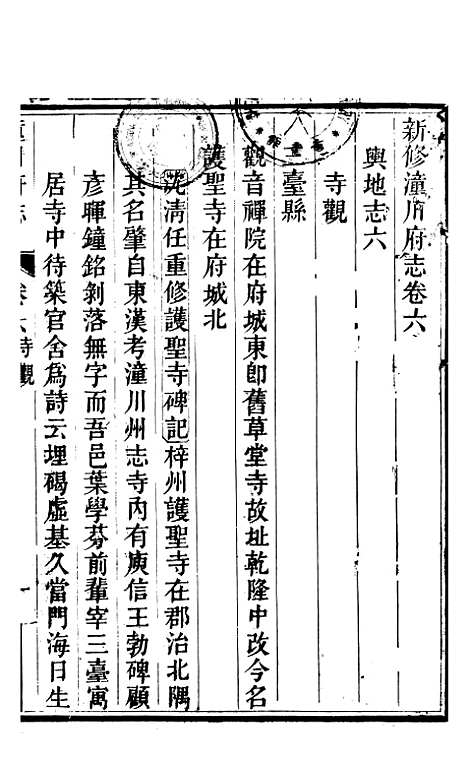 新修潼川府志卷六
輿地志六
寺觀
臺縣
觀音禪院在府城東即舊草堂寺故址乾隆中改今名
護聖寺在府城北
沈清任重修護聖寺碑記梓州護聖寺在郡治北隅
其名肇自東漢考潼川州志寺內有庾信王勃碑顧
彥暉鐘銘剝落無字而吾邑葉學芬前輩宰三臺寓
居寺中待築官舍爲詩云埋碣虛基久當門海日生
川府志 卷六 寺觀 一